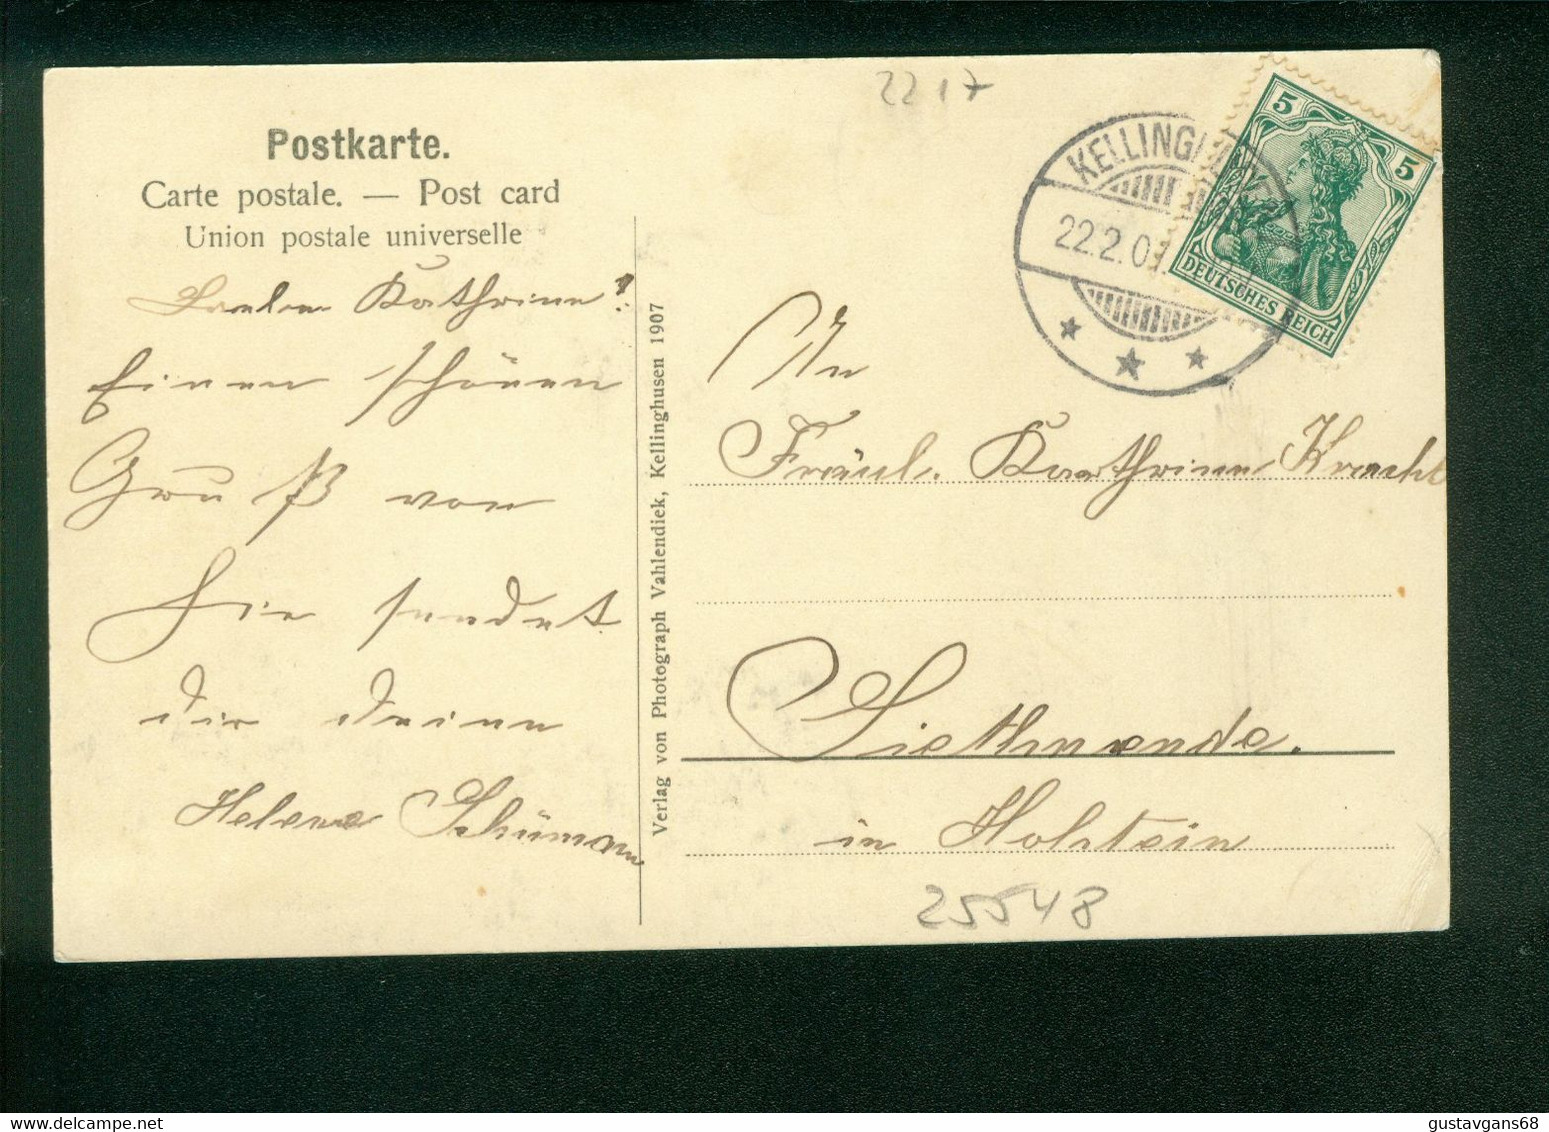 2217
Postkarte.
Carte postale. — Post card
Union postale universelle
Liebe Kathrine!
Einen schönen
Gruß von
hir sendet
dir deine
Helene Schümann
Verlag von Photograph Vahlendiek, Kellinghusen 1907
KELLINGHUSEN
22.2.07.
5
5
DEUTSCHES REICH
An
Fräul. Kathrine Kracht
Siethwende.
in Holstein
25548
gustavgans68